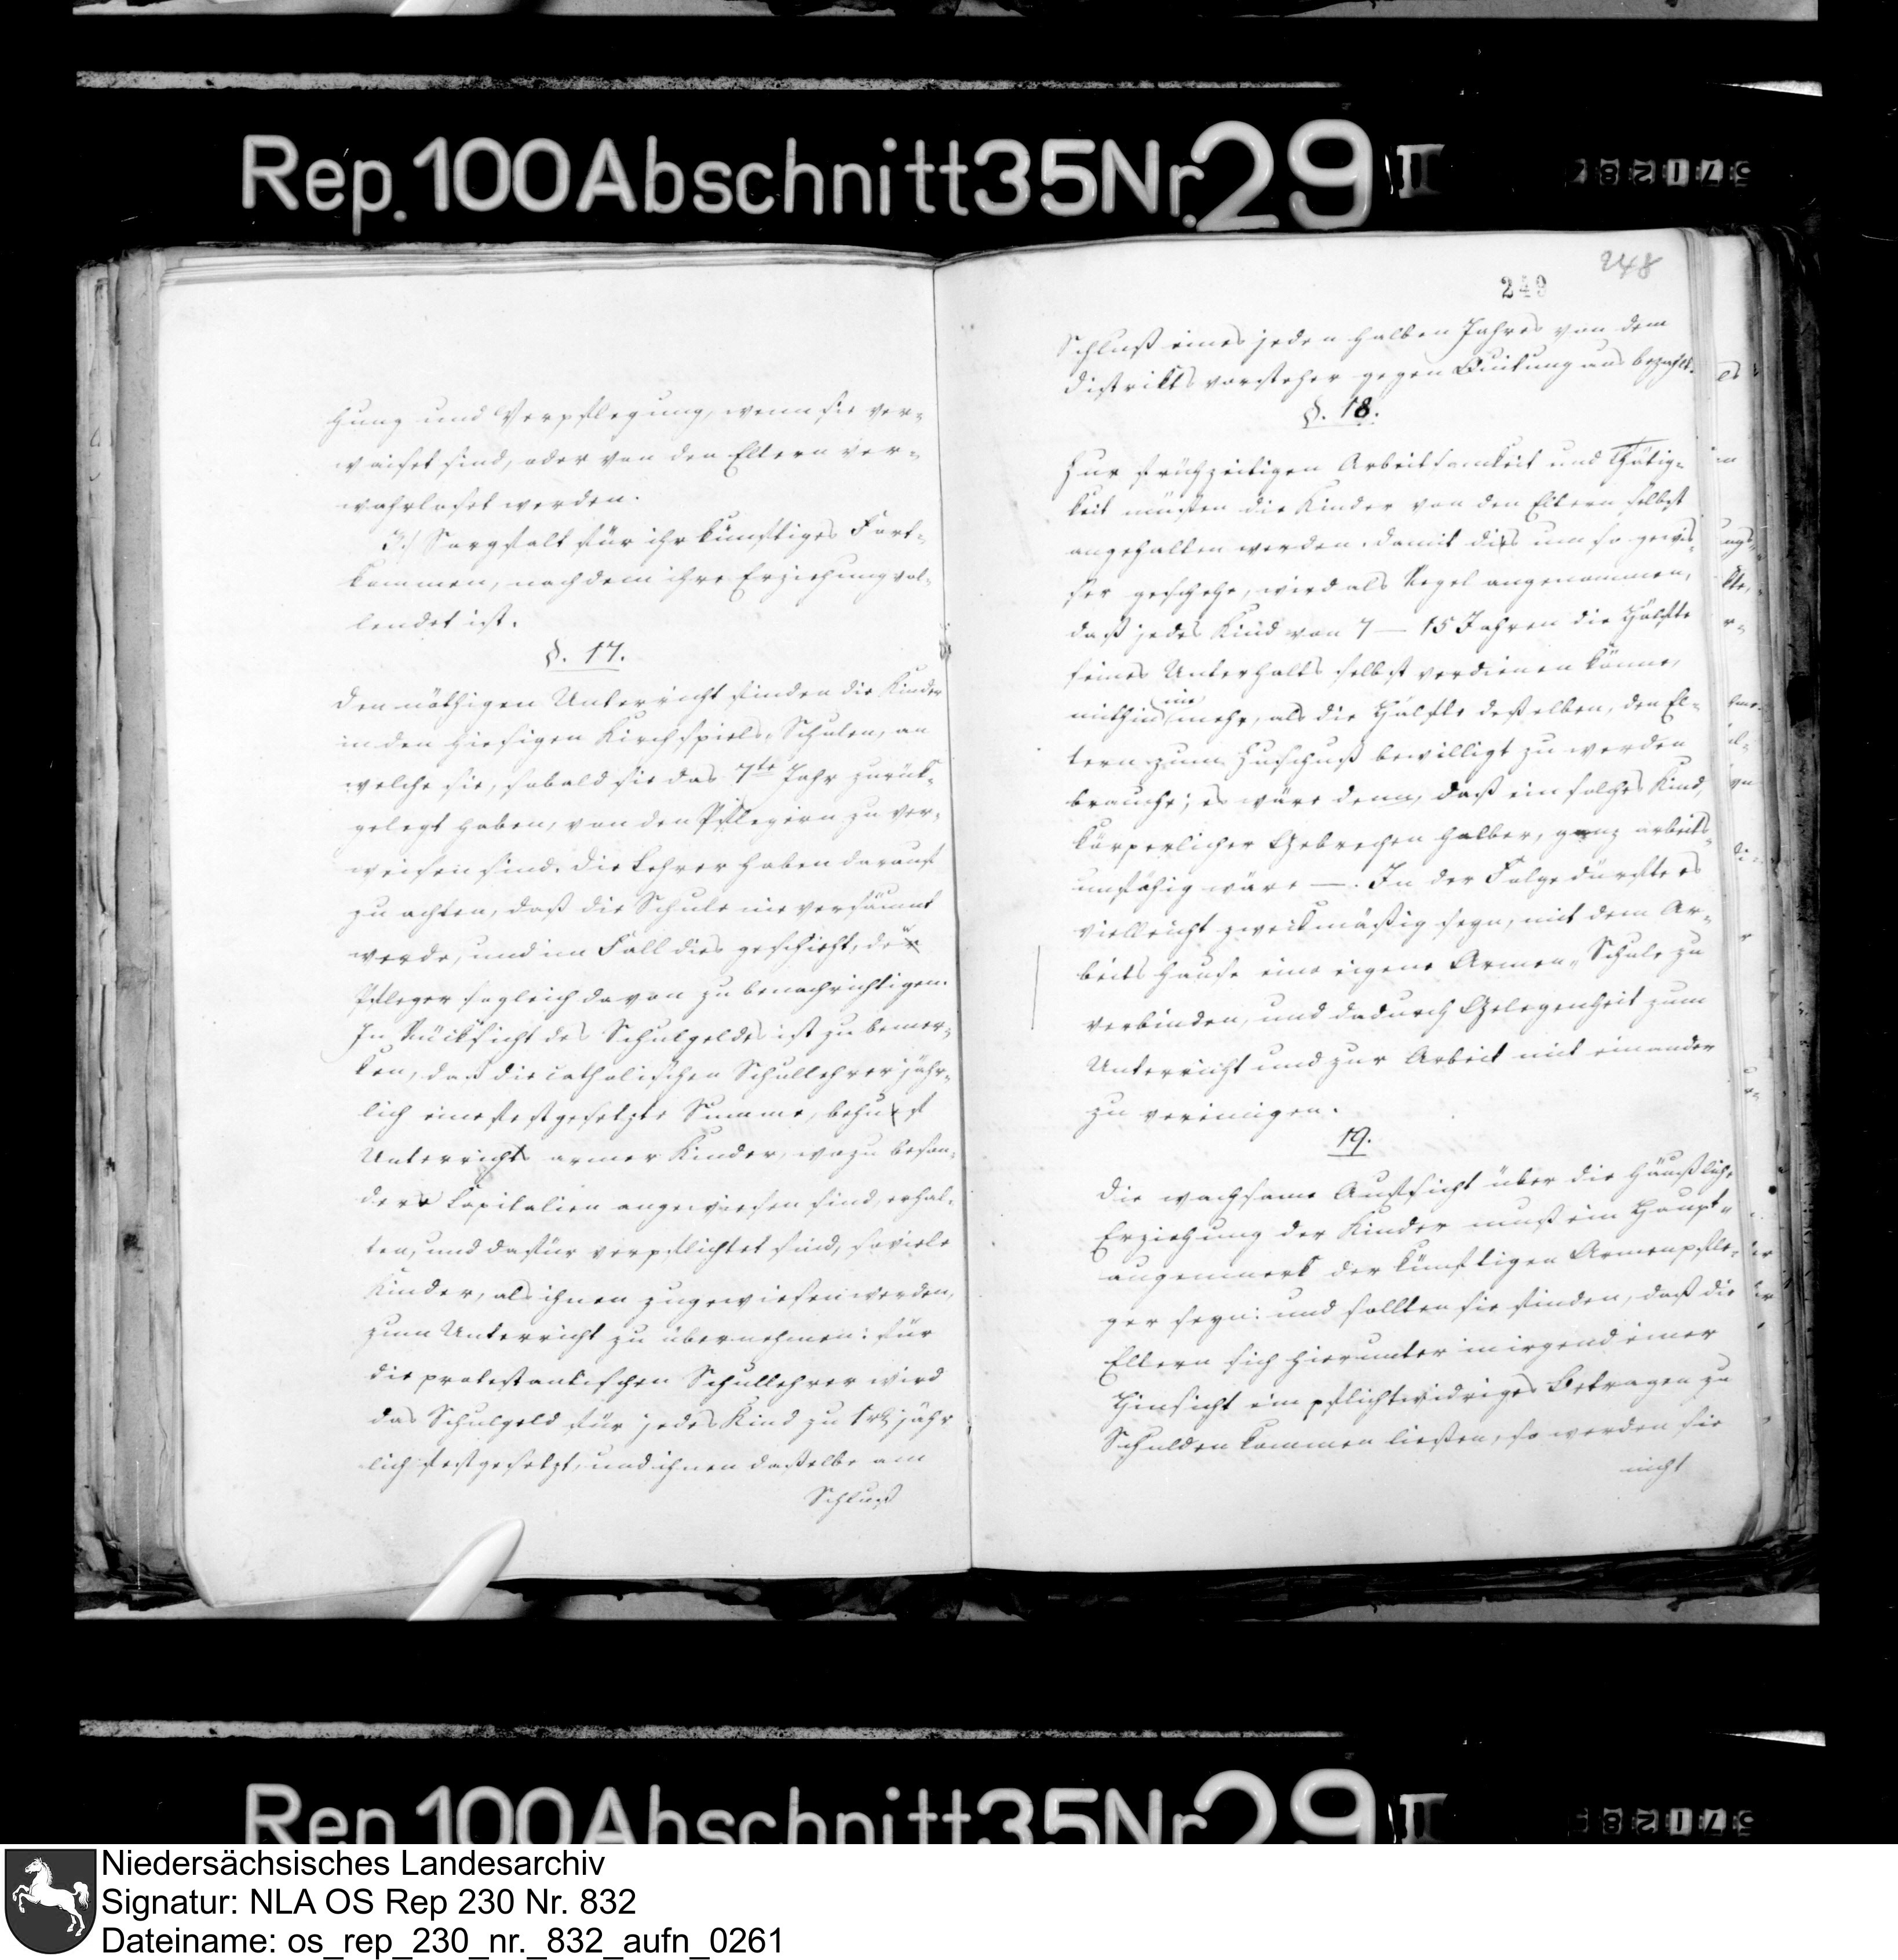 Rep. 100 Abschnitt 35 Nr. 29 II
hung und Verpflegung, wenn sie ver-
waiset sind, oder von den Eltern ver-
wahrloset werden.
3.) Sorgfalt für ihr künftiges Fort-
kommen, nachdem ihre Erziehung vol-
lendet ist.
§. 17.
Den nöthigen Unterricht finden die Kinder
in den hiesigen Kirchspiels-Schulen, an
welche sie, sobald sie das 7te Jahr zurük-
gelegt haben, von den Pflegern zu ver-
weisen sind. Die Lehrer haben darauf
zu achten, daß die Schule nie versäumt
werde, und im Fall dies geschieht, den
Pfleger sogleich davon zu benachrichtigen.
In Rücksicht des Schulgeldes ist zu bemer-
ken, daß die catholischen Schullehrer jähr-
lich eine festgesetzte Summe, behuf
Unterrichts armer Kinder, wozu beson-
dere Kapitalien angewiesen sind, erhal-
ten, und dafür verpflichtet sind, soviele
Kinder, als ihnen zugewiesen werden,
zum Unterricht zu übernehmen: für
die protestantischen Schullehrer wird
das Schulgeld für jedes Kind zu 1 rth jähr
lich festgesetzt, und ihnen daßelbe am
Schluß
248
249
Schluß eines jeden halben Jahres von dem
Distriktsvorsteher gegen Quitung aus bezahlt.
§. 18.
Zur frühzeitigen Arbeitsamkeit und Thätig-
keit müßen die Kinder von den Eltern selbst
angehalten werden. Damit dies um so gewis-
ser geschehe, wird als Regel angenommen,
daß jedes Kind von 7 — 15 Jahren die Hälfte
seines Unterhalts selbst verdienen könne,
mithin nie mehr, als die Hälfte deßelben, den El-
tern zum Zuschuß bewilligt zu werden
brauche; es wäre denn, daß ein solches Kind,
körperlicher Gebrechen halber, ganz arbeits-
unfähig wäre —. In der Folge dürfte es
vielleicht zweckmäßig seyn, mit dem Ar-
beitshause eine eigene Armen-Schule zu
verbinden, und dadurch Gelegenheit zum
Unterricht und zur Arbeit mit einander
zu vereinigen.
19.
Die wachsame Aufsicht über die häußliche
Erziehung der Kinder muß ein Haupt-
augenmerk der künftigen Armenpfle-
ger seyn: und sollten sie finden, daß die
Eltern sich hierunter in irgend einer
Hinsicht ein pflichtwidriges Betragen zu
Schulden kommen ließen, so werden sie
nicht
Rep. 100 Abschnitt 35 Nr. 29 II
Niedersächsisches Landesarchiv
Signatur: NLA OS Rep 230 Nr. 832
Dateiname: os_rep_230_nr._832_aufn_0261